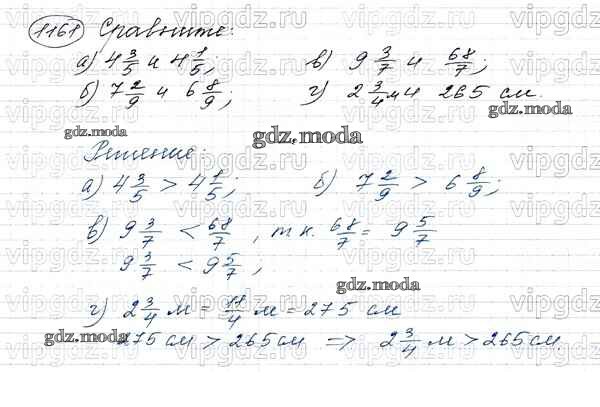 1161 Сравните:
а) 4 3/5 и 4 1/5; в) 9 3/7 и 68/7;
б) 7 2/9 и 6 8/9; г) 2 3/4 м и 265 см.
gdz.moda gdz.moda
gdz.moda
Решение:
а) 4 3/5 > 4 1/5; б) 7 2/9 > 6 8/9;
в) 9 3/7 < 68/7, т.к. 68/7 = 9 5/7
9 3/7 < 9 5/7;
gdz.moda
г) 2 3/4 м = 11/4 м = 275 см
gdz.moda
275 см > 265 см => 2 3/4 м > 265 см.